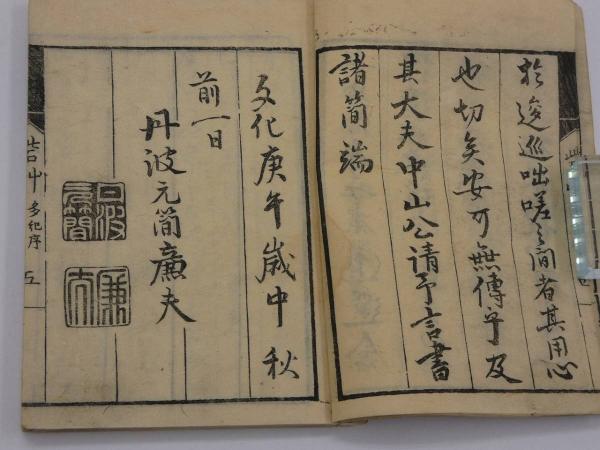 於逡巡咄嗟之間者其用心
也切矣安可無傳乎及
其大夫中山公請予言書
諸簡端
文化庚午歲中秋
前一日
丹波元簡廉夫
丹波元簡
廉夫
多紀序
五